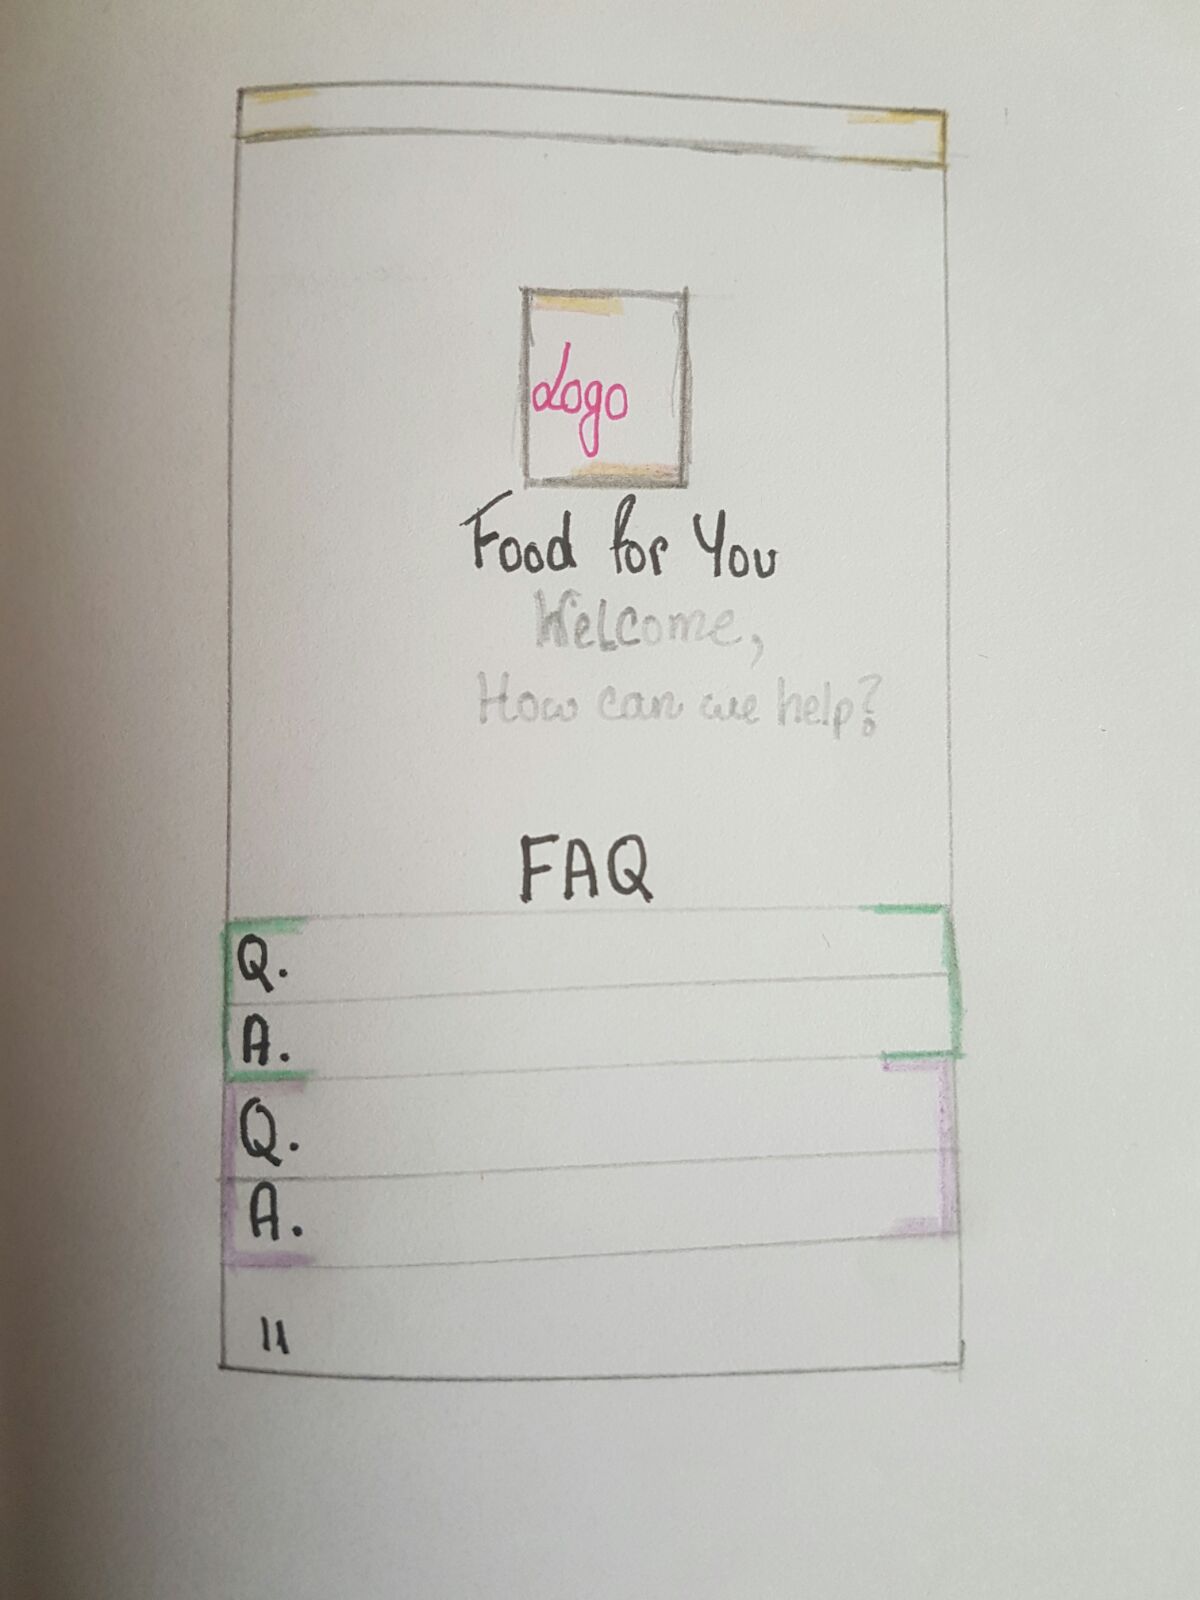 Logo
Food for You
Welcome,
How can we help?
FAQ
Q.
A.
Q.
A.
11